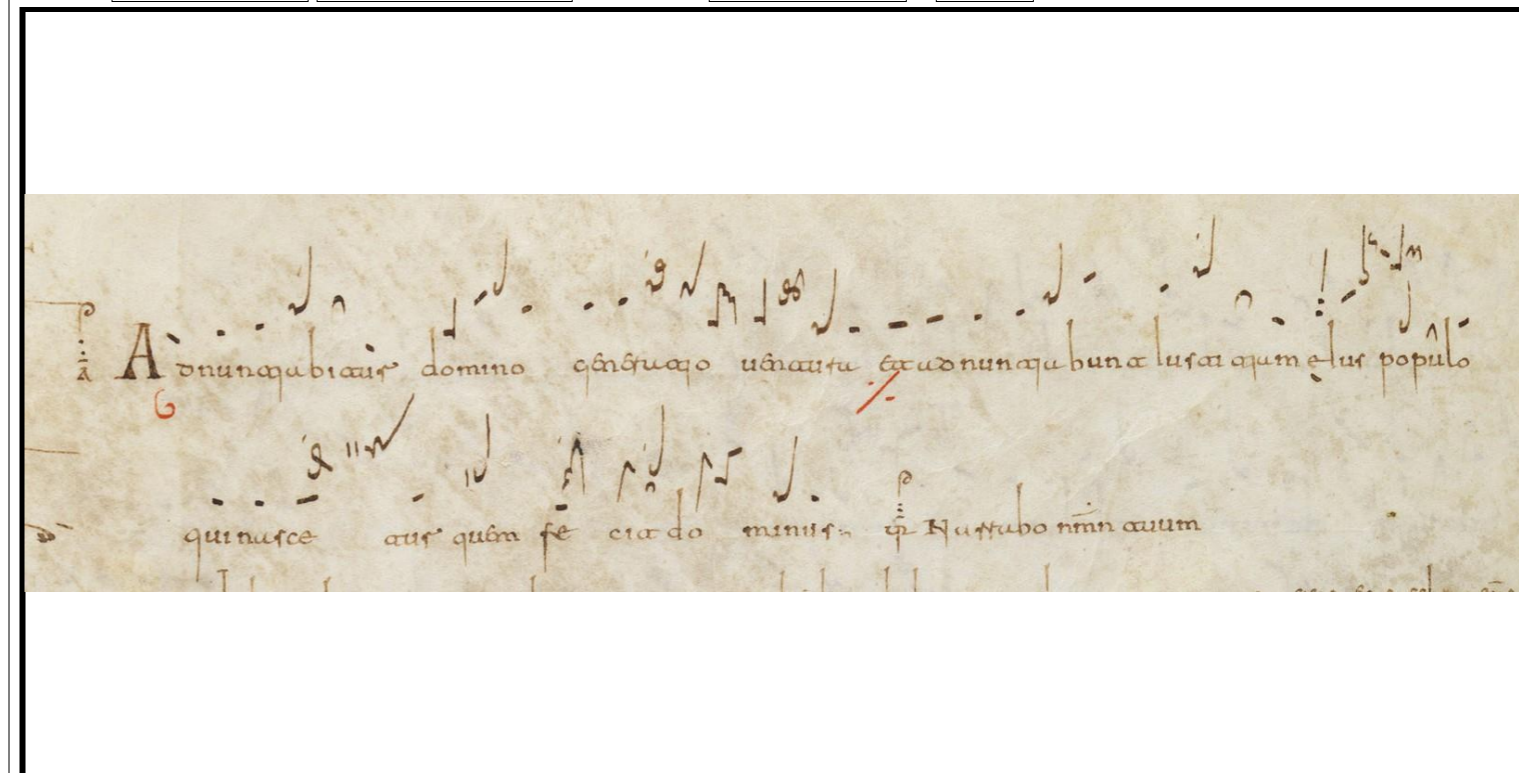 VR Adnuntiabitur domino generatio uentura et adnuntiabunt iustitiam eius populo
qui nascetur quem fecit dominus Narrabo nmn tuum